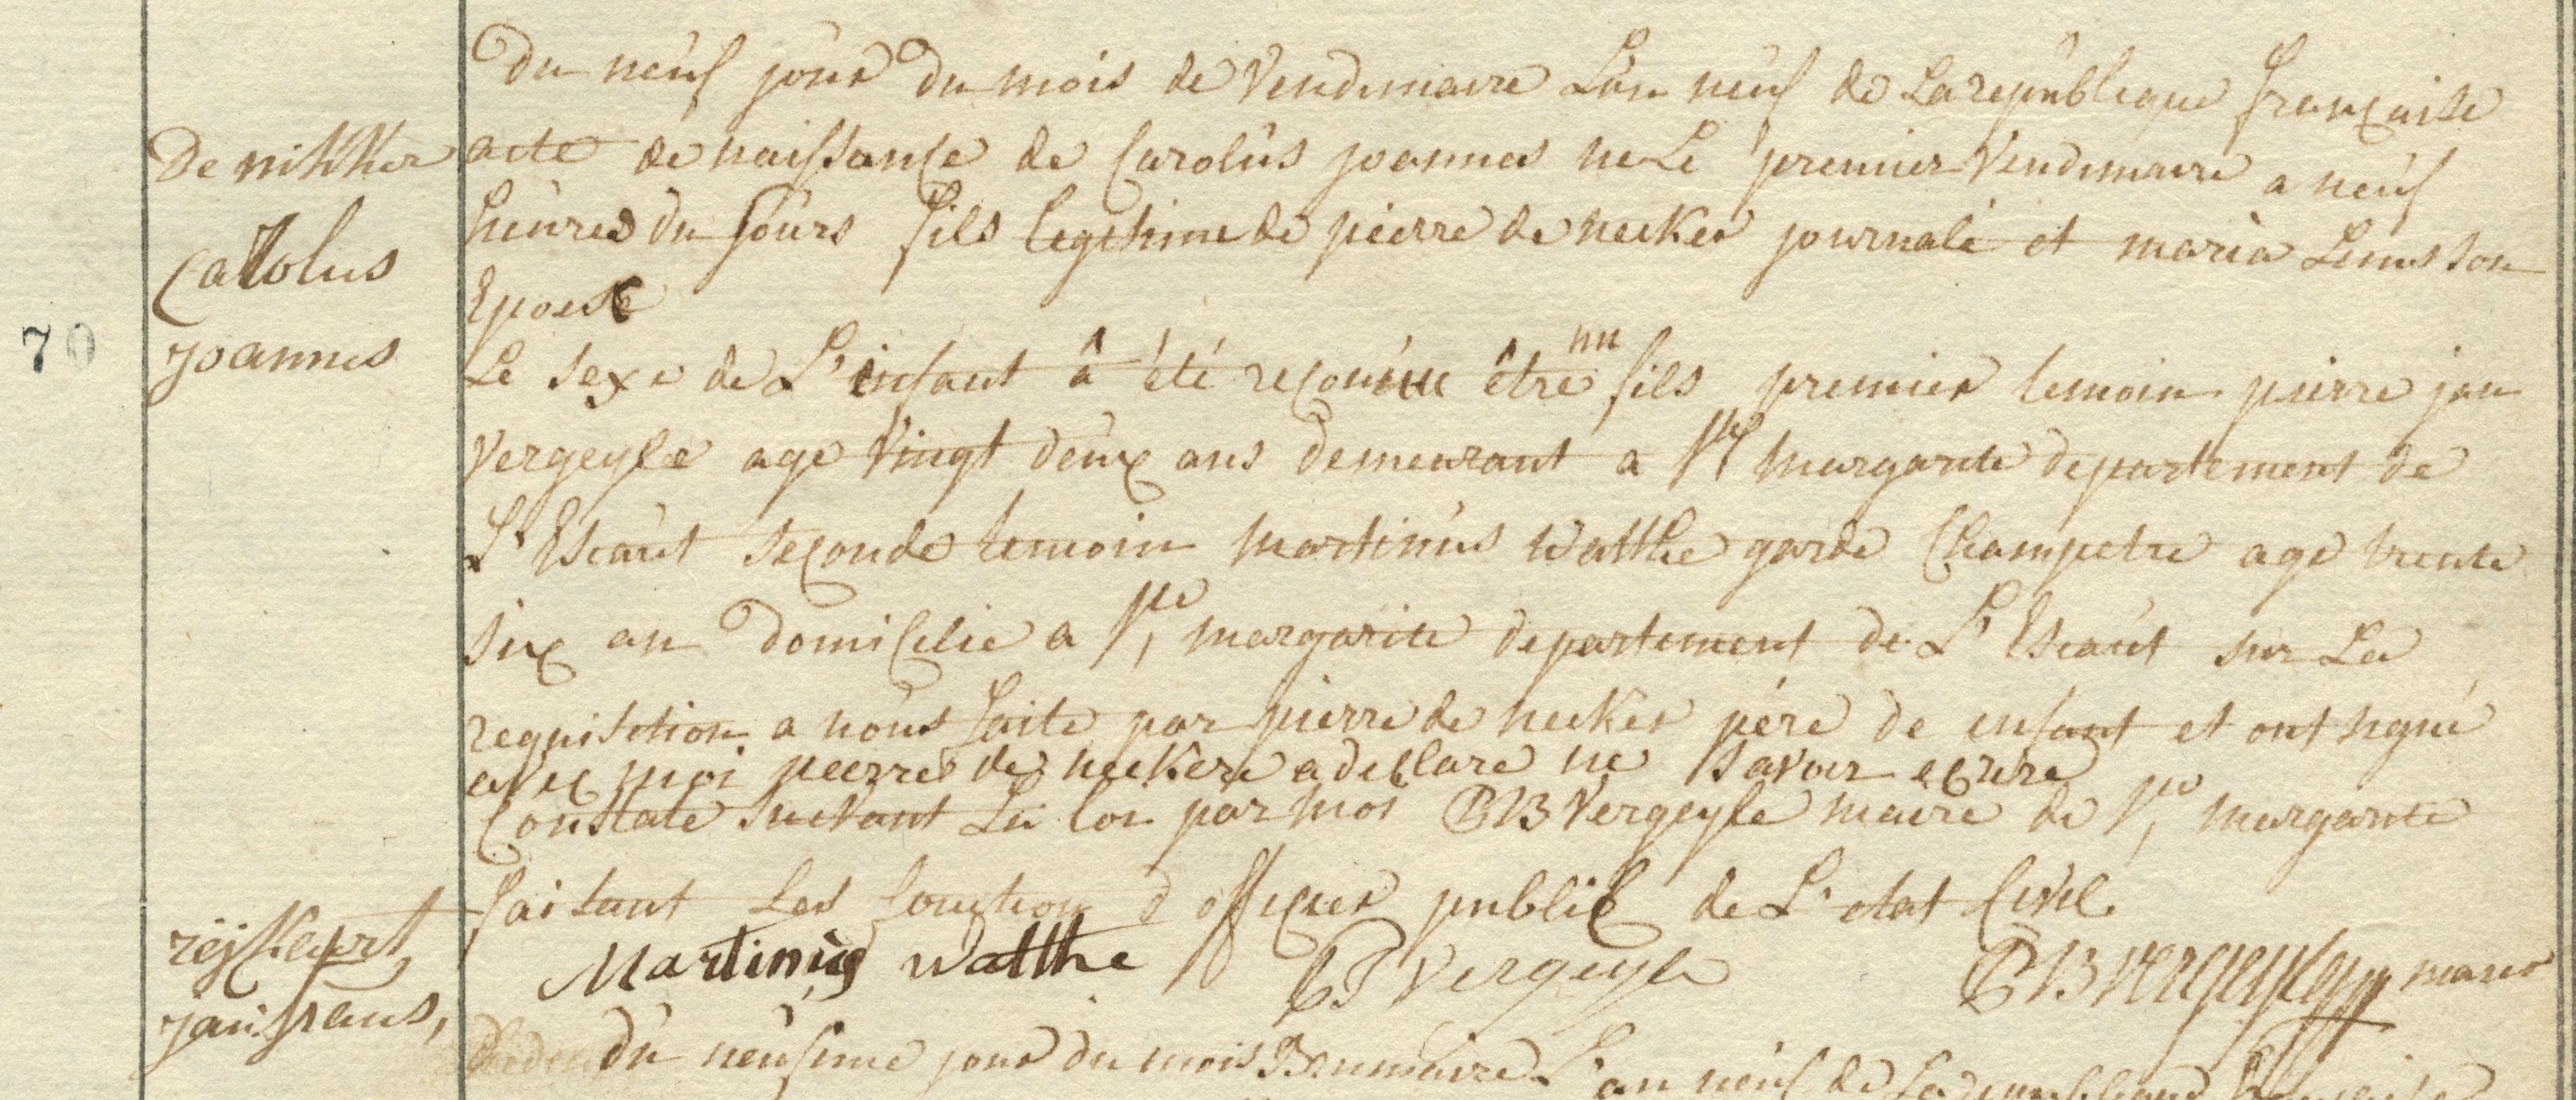 Du neuf jour Du mois de Vendimaire L'an neuf de La republeque françaiše
De nikker
acte de naissance de Carolus joannes ne Le premier Vendimaire a neuf
Carolus
heures du Sours fils legetime de pierre de necker journali et maria Lenus son
Epouse
70
joannes
Le sexe de L'infant â été reconuu être un fils premier temoin pierre jan
Vergeyle age Vingt deux ans demeurant a Ste margarite departement de
L'Escaut seconde temoin Martinus Watthe garde Champetre age trente
six an Domicilie a Ste margarite departement de L'Escaut sur La
requisition a nous faite par pierre de necker pére de enfant et ont signé
avec moi pierre de neckere a declare ne savoir ecrire
Constate suivant La loi par moi PB Vergeyle maire de Ste margarite
faisant les fonction d officier public de L'etat Civil
rijckaert
Martinus Watthe PJ Vergeyle PB Vergeyle maire
jan frans,
du neufime jour du mois Brumaire L'an neuf de La republeque françaiše